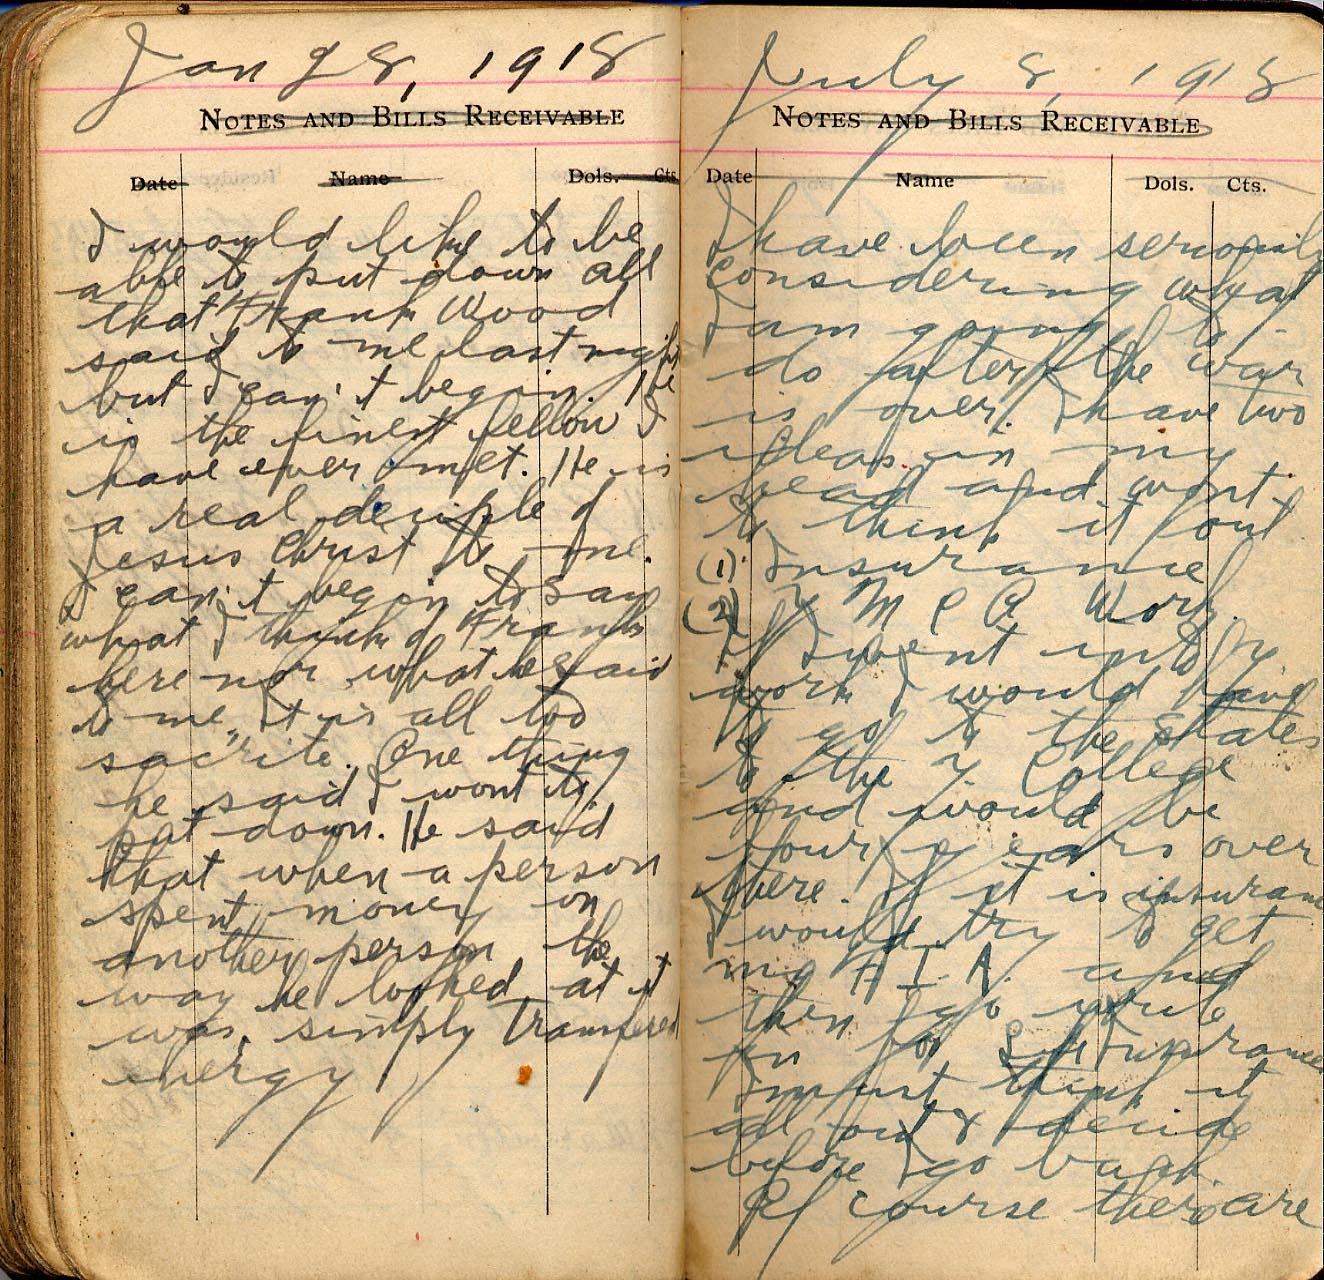 Jan 28, 1918
NOTES AND BILLS RECEIVABLE
Date Name Dols. Cts.
I would like to be
able to put down all
that Frank Wood
said to me last night
but I can't begin. He
is the finest fellow I
have ever met. He is
a real deciple of
Jesus Christ to me.
I can't begin to say
what I think of Frank
here nor what he said
to me, it is all too
sacrite. One thing
he said I wont to
put down. He said
that when a person
spent money on
another person the
way he looked at it
was simply transfered
energy
July 8, 1918
NOTES AND BILLS RECEIVABLE
Date Name Dols. Cts.
I have been seriously
considering what
I am going to
do after the war
is over. I have two
ideas in my
head and wont
to think it out
(1) Insurance
(2) Y M C A Work.
If I went into Y
work I would have
to go to the States
to the Y College
and would be
four years over
there. If it is insurance
I would try to get
my A I A and
then go
in for Insurance
I must think it
all out & decide
before I go back.
Of course there are